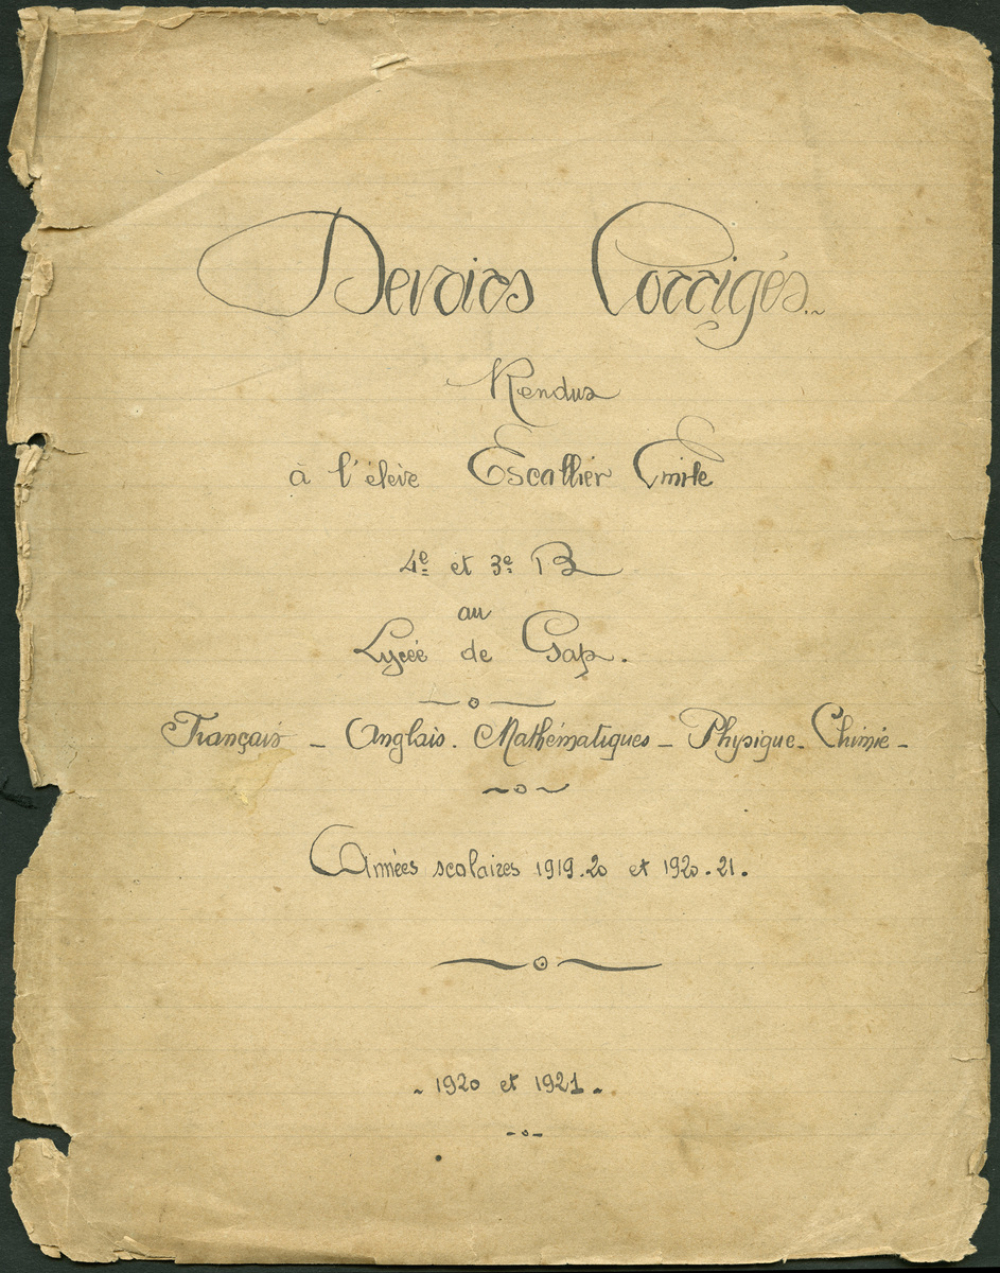 Devoirs Corrigés.~
Rendus
à l'élève Escallier Emile
4e et 3e B
au
Lycée de Gap.
Français - Anglais. Mathématiques - Physique - Chimie -
Années scolaires 1919.20 et 1920.21.
- 1920 et 1921 -